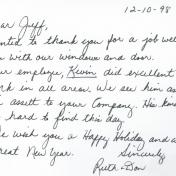 12-10-98
ar Jeff,
nted to thank you for a job well
e with our windows and door.
ur employee, Kevin did excellent
rk in all areas. We see him as
asset to your Company. His kno
hard to find this day.
e wish you a Happy Holiday and a
reat New Year.
Sincerely
Ruth + Don